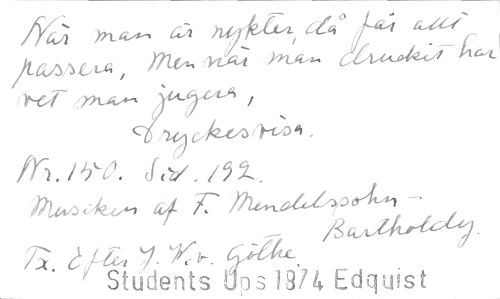 När man är nykter, då får allt
passera, Men när man druckit har
vet man jugera,
Dryckesvisa.
Nr. 150. Sid. 192.
Musiken af F. Mendelssohn-
Bartholdy.
Tx. Efter J. W. v. Göthe.
Students Ups 1874 Edquist